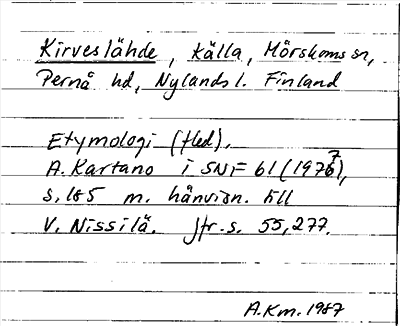 Kirveslähde, källa, Mörskoms sn,
Pernå hd, Nylands l. Finland
Etymologi (fled).
A. Kartano i SNF 61 (1977),
s. 185 m. hänvisn. till
V. Nissilä. Jfr. s. 55, 277.
A.Km. 1987